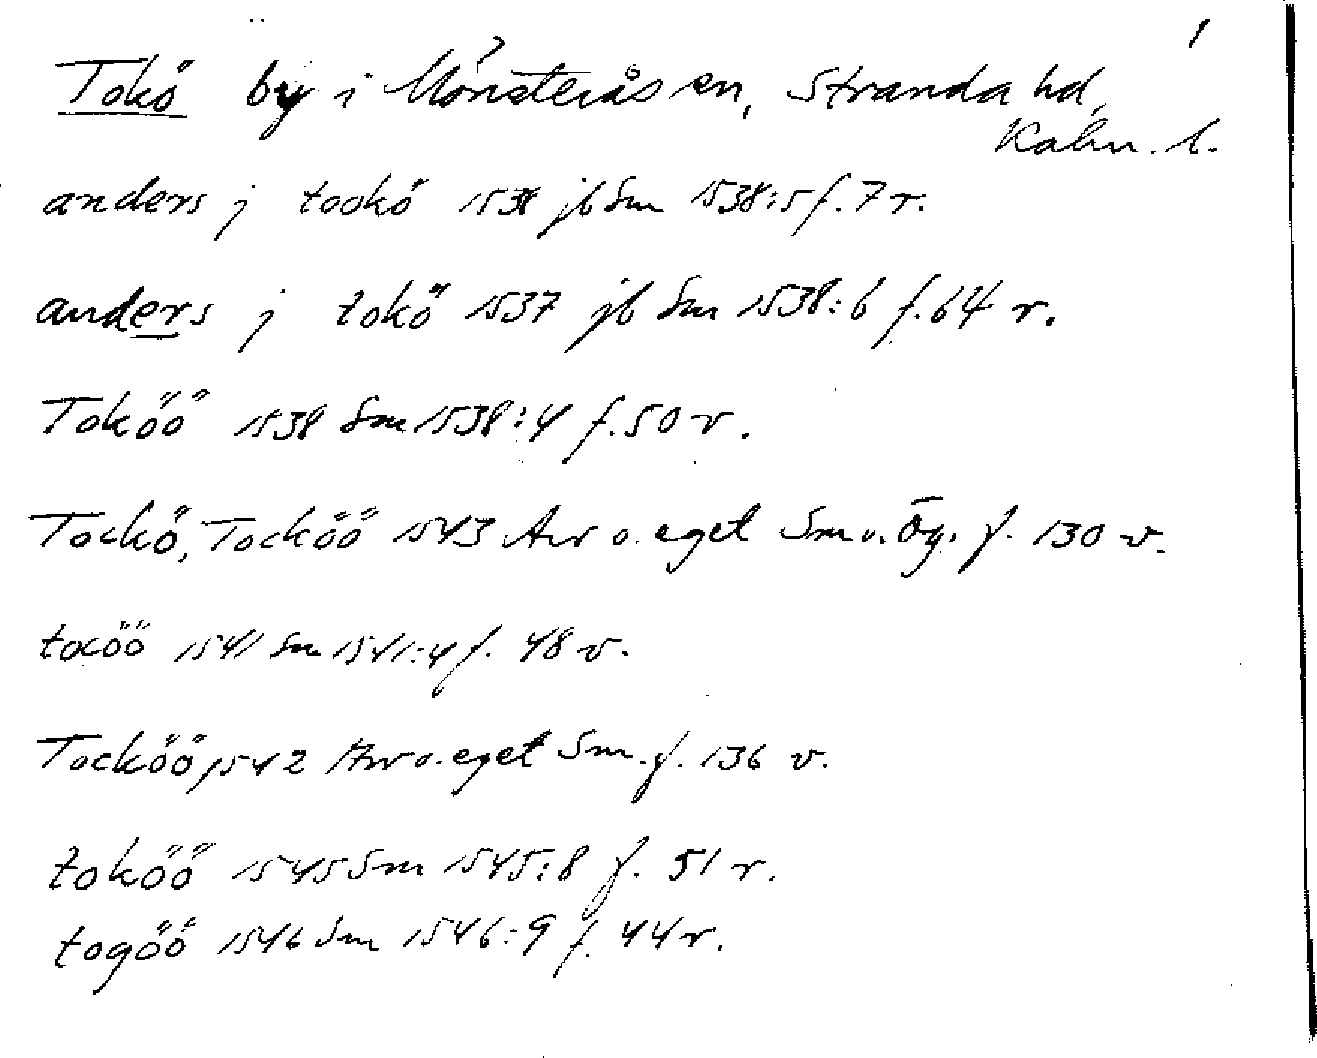 1
Tokö by i Mönsterås sn, Stranda hd,
Kalm. l.
anders j tockö 1538 jb Sm 1538:5 f. 7 r.
anders j tokö 1537 jb Sm 1538:6 f. 64 r.
Toköö 1538 Sm 1538:4 f. 50 v.
Tockö, Tocköö 1543 Arv o. eget Sm o. Ög. f. 130 v.
tocöö 1541 Sm 1541:4 f. 48 v.
Tocköö, 1542 Arv o. eget Sm. f. 136 v.
toköö 1545 Sm 1545:8 f. 51 r.
togöö 1546 Sm 1546:9 f. 44 r.